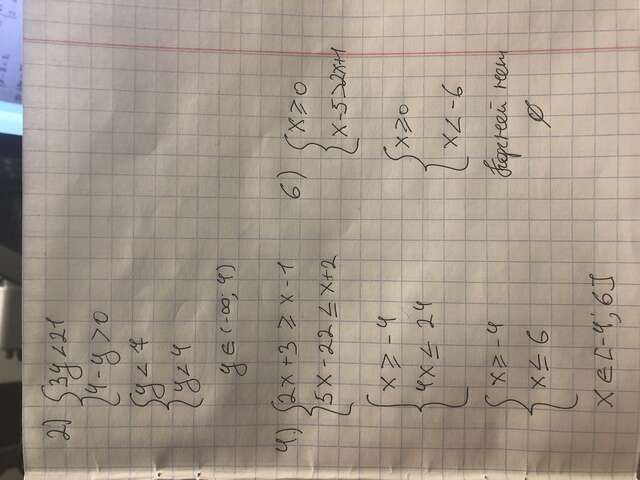 2) { 3y < 21
4 - y > 0
{ y < 7
y < 4
y ∈ (-∞; 4)
4.) { 2x + 3 ≥ x - 1
5x - 22 ≤ x + 2
{ x ≥ -4
4x ≤ 24
{ x ≥ -4
x ≤ 6
x ∈ [-4; 6]
6) { x ≥ 0
x - 5 > 2x + 1
{ x ≥ 0
x < -6
Корней нет
∅